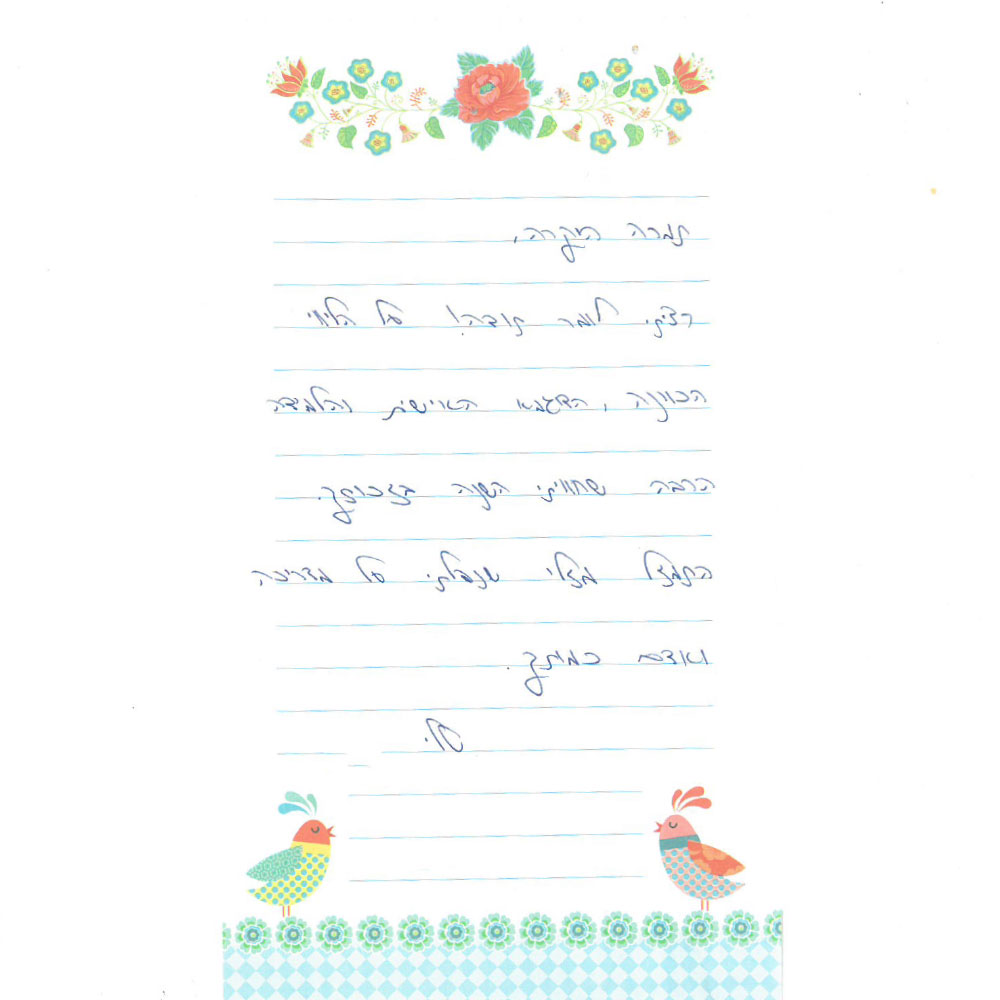 תמרה היקרה,
רציתי לומר תודה! על הליווי
הכוונה, הדוגמא האישית והלמידה
הרבה שחוויתי השנה בזכותך.
התמזל מזלי שנפלתי על מדריכה
ואדם כמותך.
שלי.